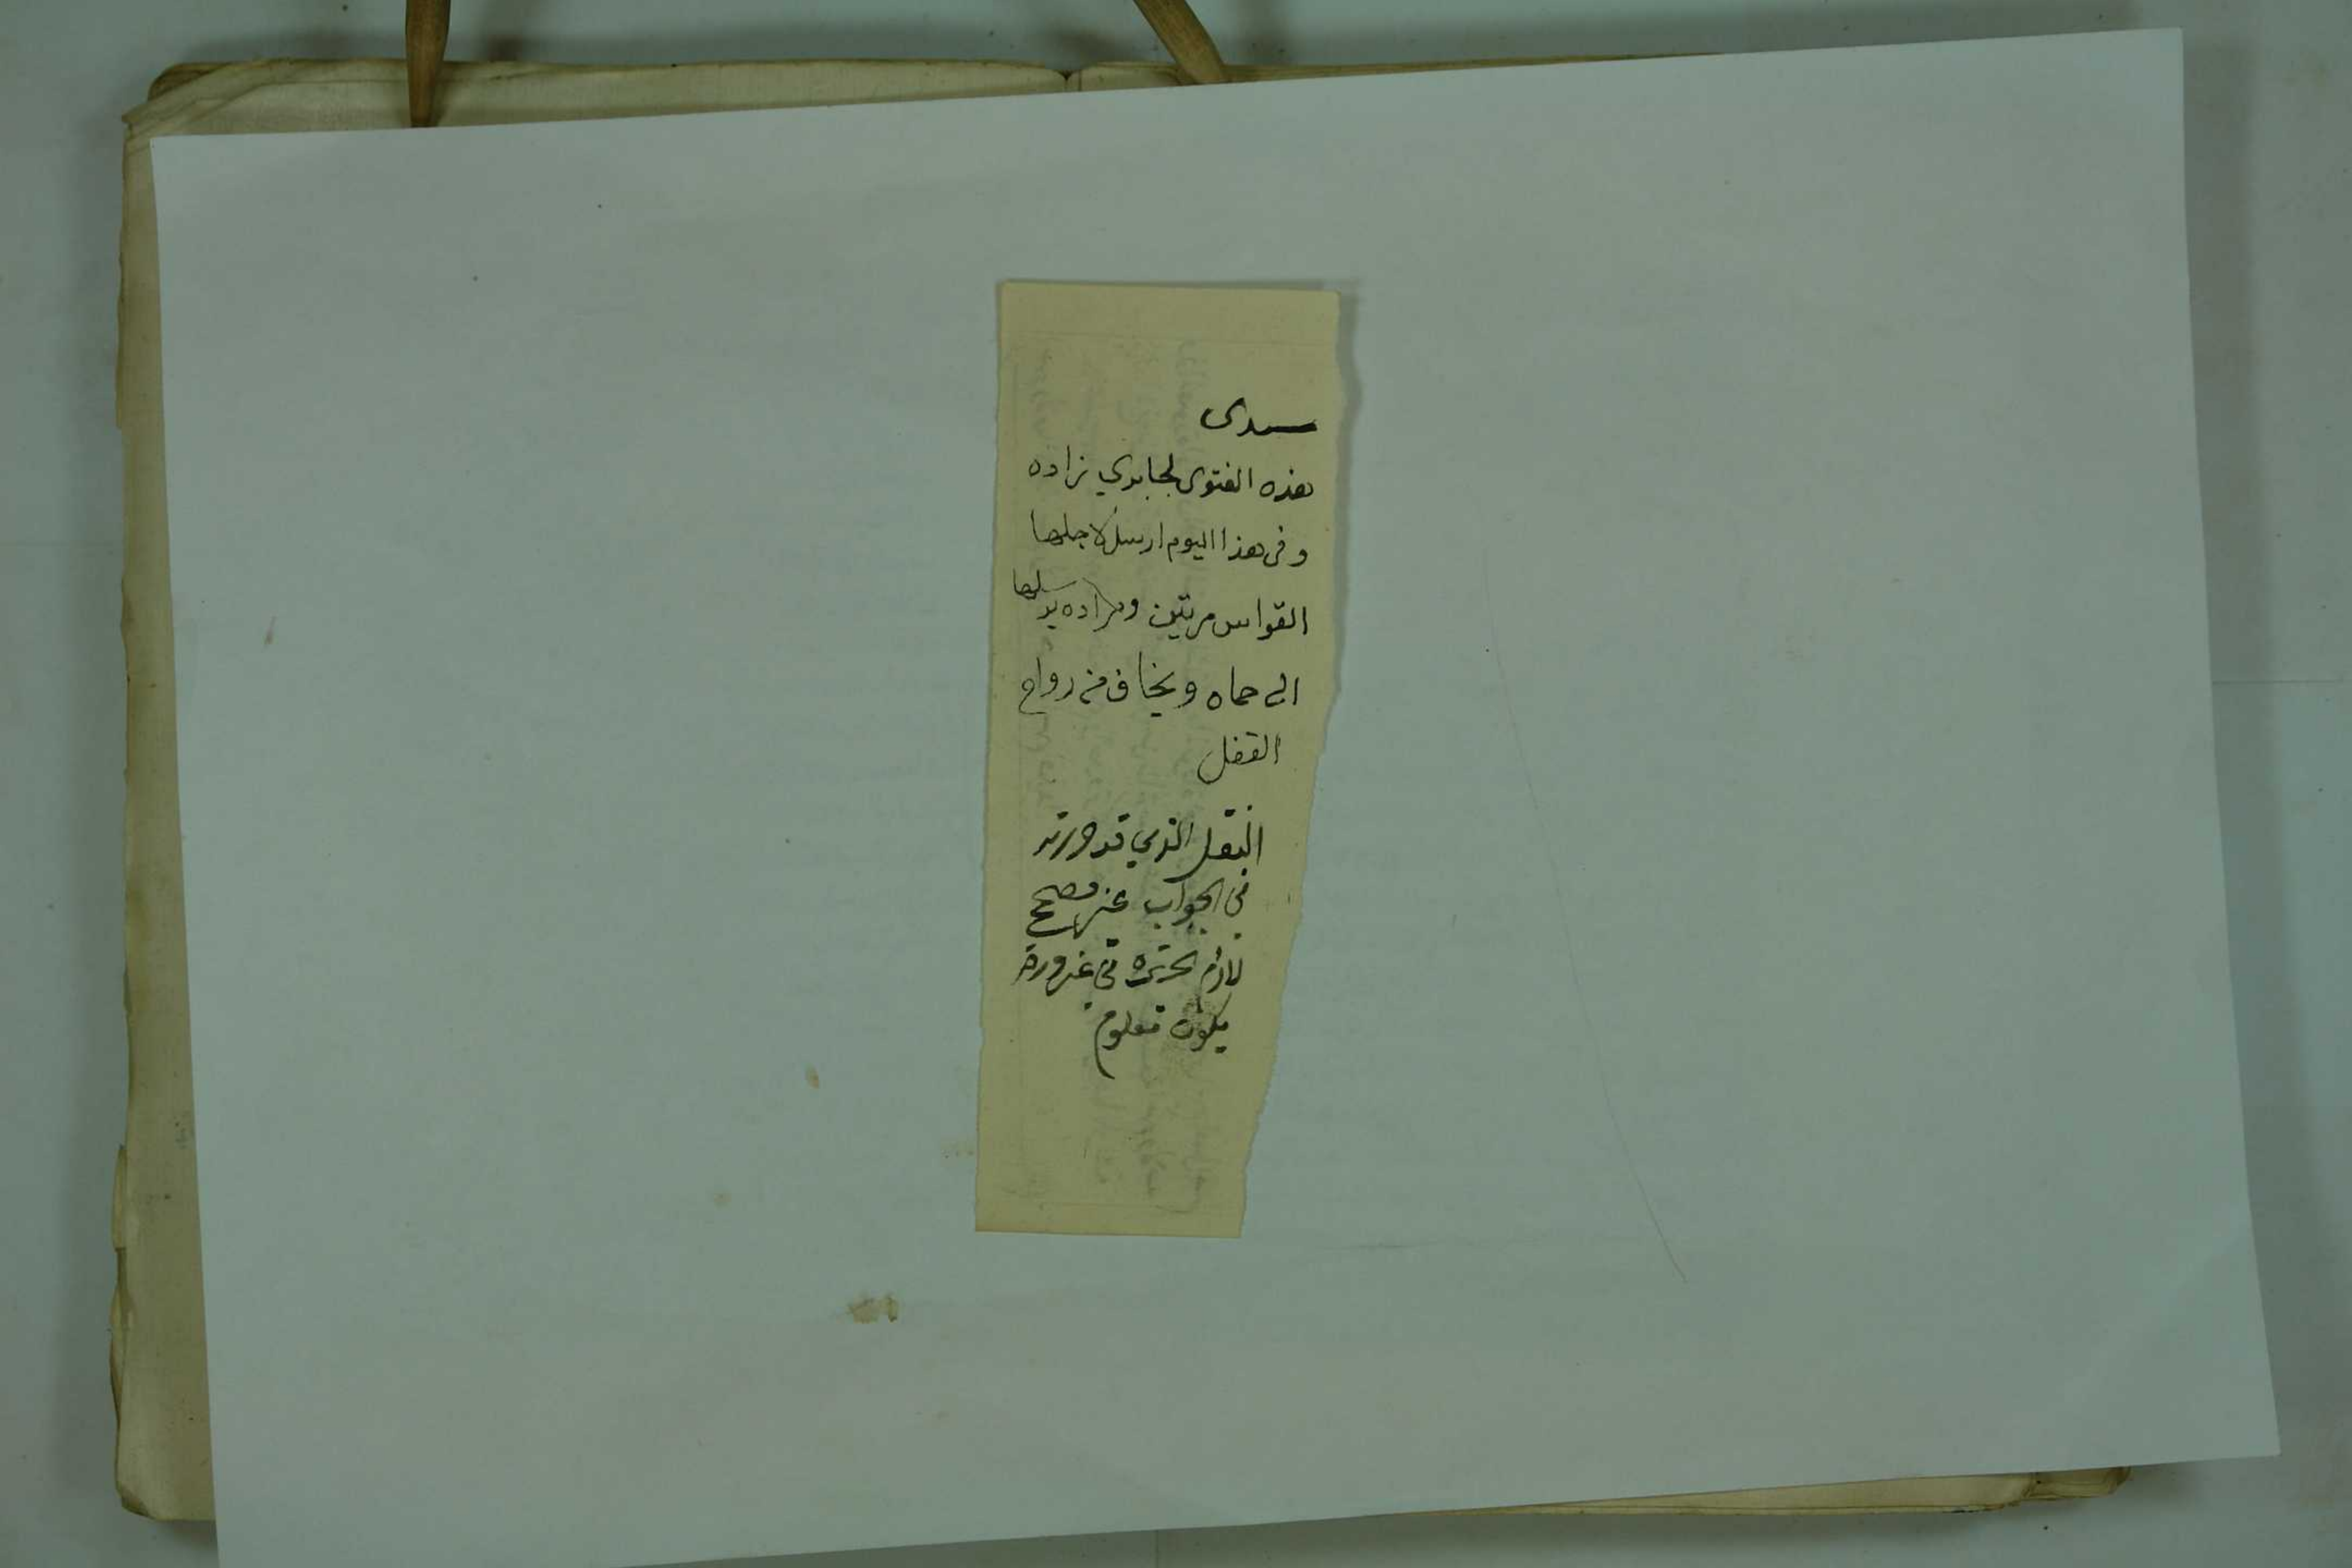 سيدى
هذه الفتوى لجابري زاده
وفى هذا اليوم ارسل لاجلها
القواس مرتين ومراده يرسلها
الى حماه ويخاف من رواح
القفل
النقل الذي قد
في الجواب غير مصحح
لازم في
يكون معلوم